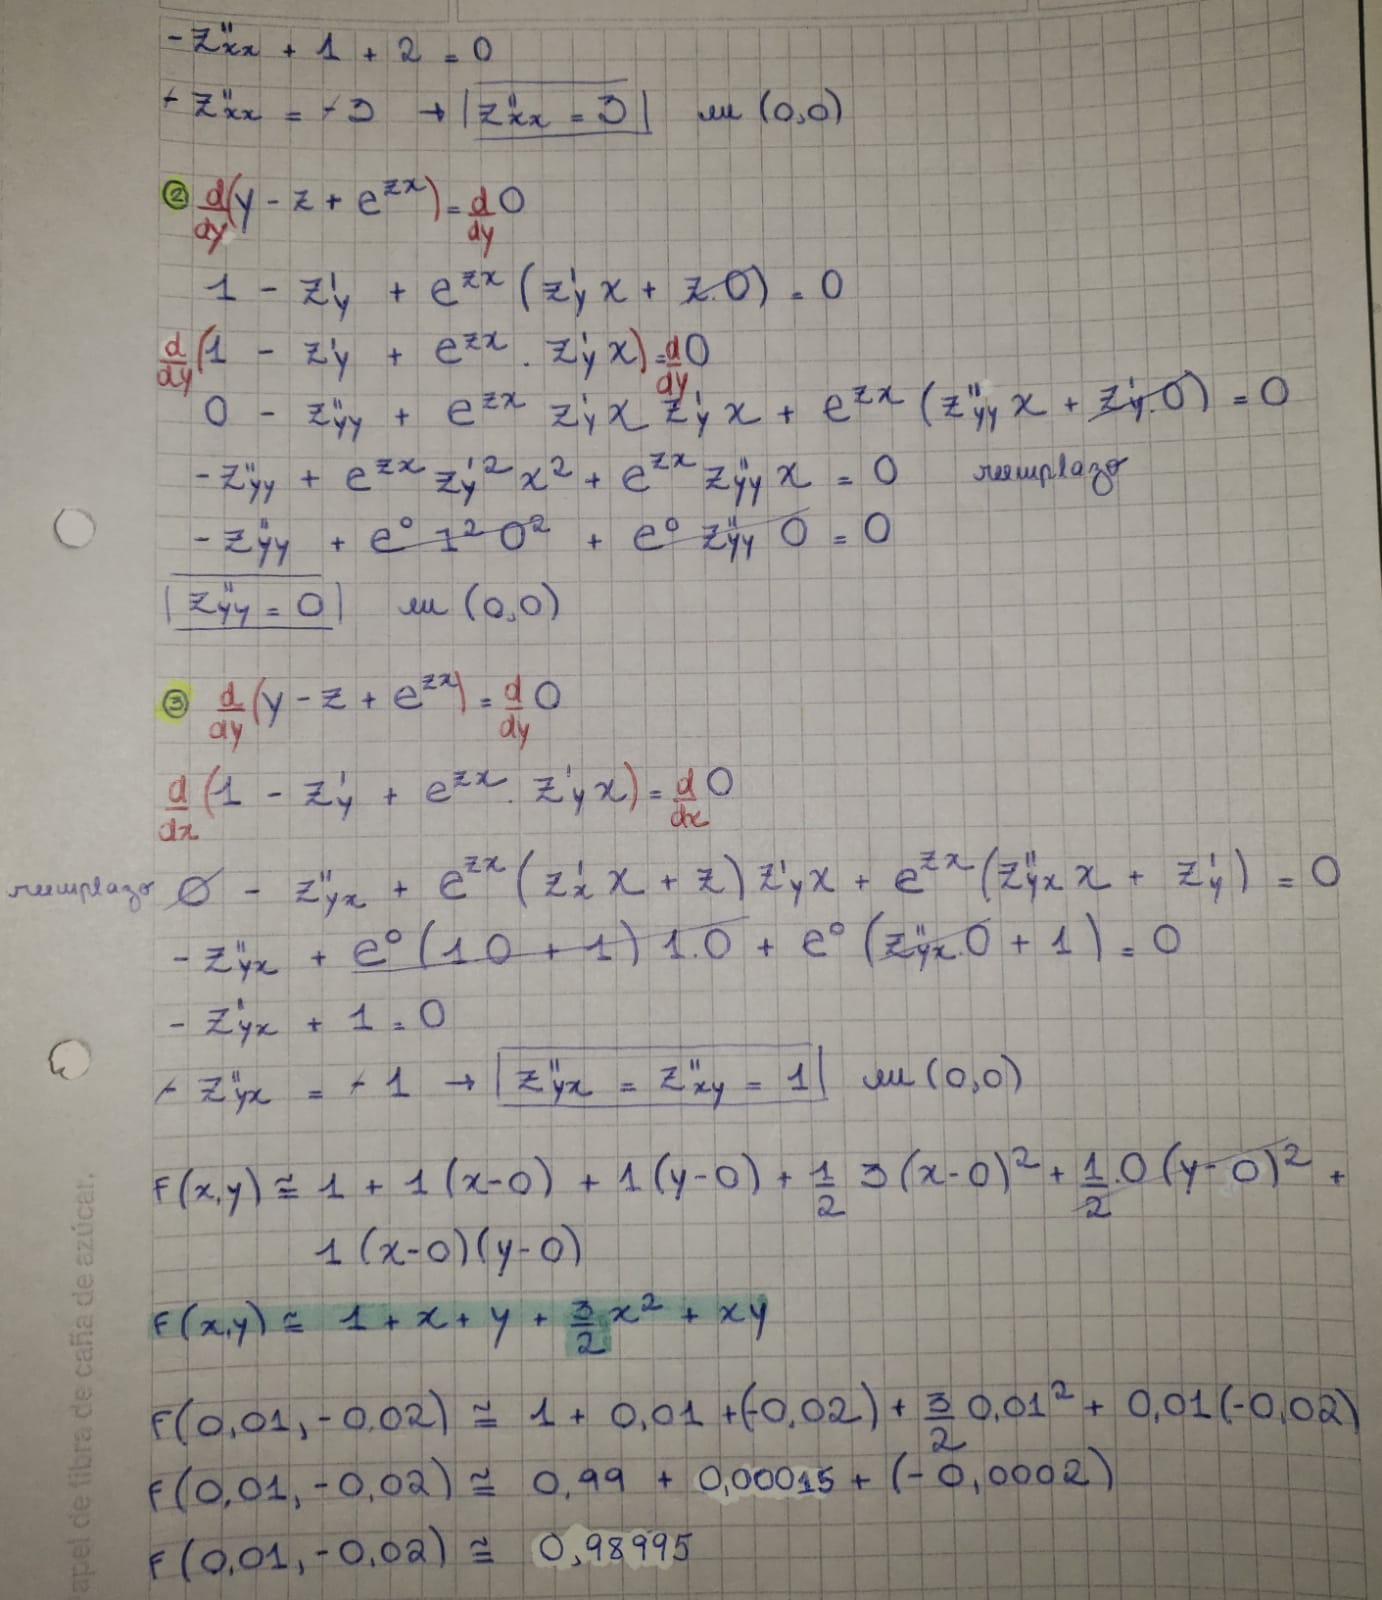 -z''xx + 1 + 2 = 0
-z''xx = -3 → |z''xx = 3| en (0,0)
② d/dy (y - z + e^zx) = d/dy 0
1 - z'y + e^zx (z'y x + z.0) = 0
d/dy (1 - z'y + e^zx . z'y x) = d/dy 0
0 - z''yy + e^zx z'y x z'y x + e^zx (z''yy x + z'y.0) = 0
-z''yy + e^zx z'y² x² + e^zx z''yy x = 0 reemplazo
-z''yy + e⁰ 1² 0² + e⁰ z''yy 0 = 0
|z''yy = 0| en (0,0)
③ d/dy (y - z + e^zx) = d/dy 0
d/dx (1 - z'y + e^zx . z'y x) = d/dx 0
reemplazo 0 - z''yx + e^zx (z'x x + z) z'y x + e^zx (z''yx x + z'y) = 0
-z''yx + e⁰ (1.0 + 1) 1.0 + e⁰ (z''yx.0 + 1) = 0
-z'yx + 1 = 0
-z''yx = -1 → |z''yx = z''xy = 1| en (0,0)
F(x,y) ≅ 1 + 1(x-0) + 1(y-0) + 1/2 3(x-0)² + 1/2.0(y-0)² +
1(x-0)(y-0)
F(x,y) ≅ 1 + x + y + 3/2 x² + xy
F(0,01,-0,02) ≅ 1 + 0,01 + (-0,02) + 3/2 0,01² + 0,01(-0,02)
F(0,01,-0,02) ≅ 0,99 + 0,00015 + (-0,0002)
F(0,01,-0,02) ≅ 0,98995
apel de fibra de caña de azúcar.